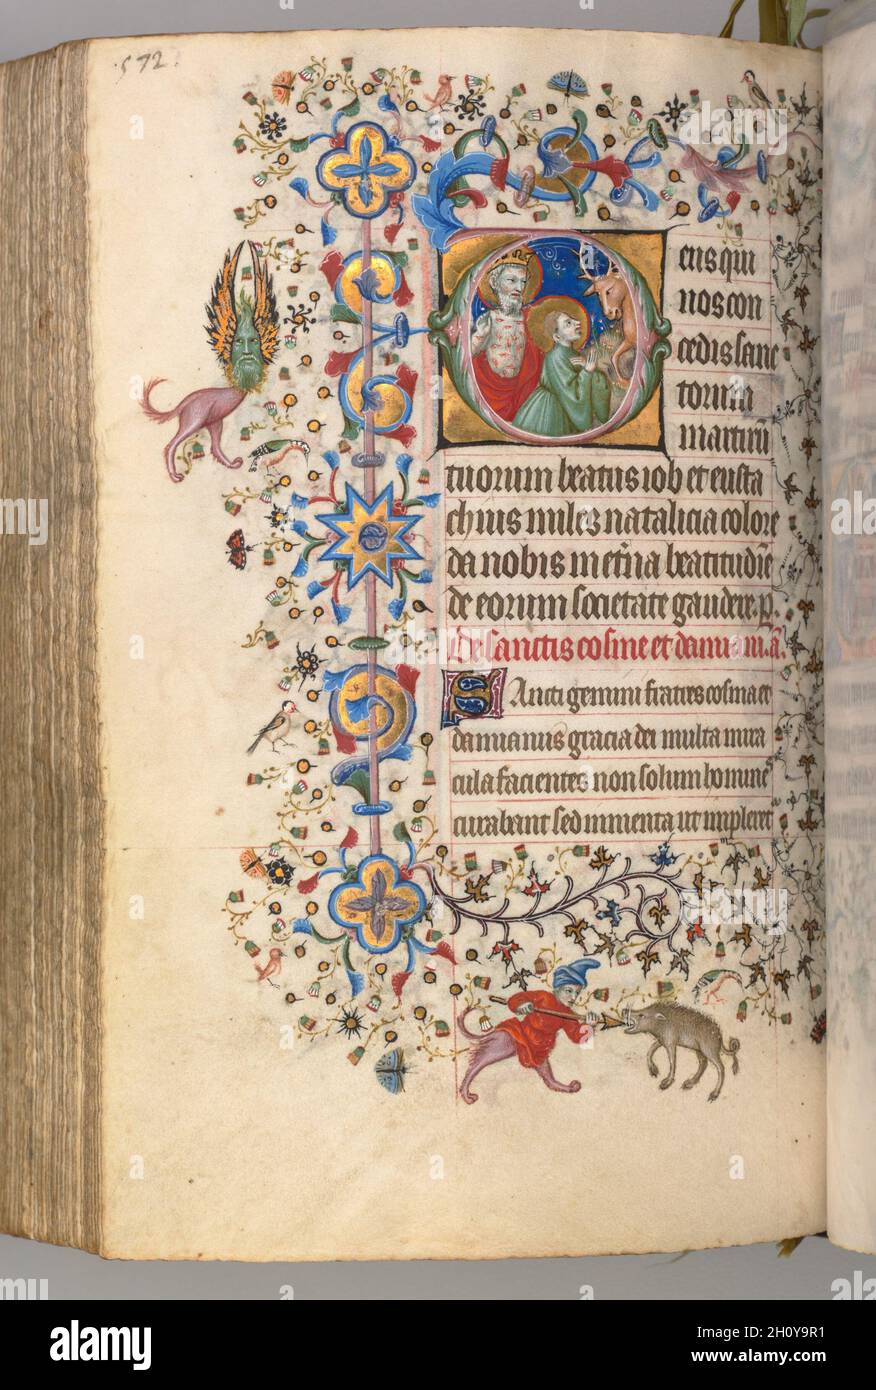 ·572·
eus qui
nos con
cedis sanc
torum
martirū
tuorum beatus iob et eusta
chius miles natalicia colore
da nobis in et̄na beatitudīe
de eorum societate gaudere. p̱.
De sanctis cosme et damiani. ā.
Sancti gemini fratres cosma et
damianus gracia dei multa mira
cula facientes non solum homīne
curabant sed iumenta ut impleret
alamy
Image ID: 2H0Y9R1
www.alamy.com